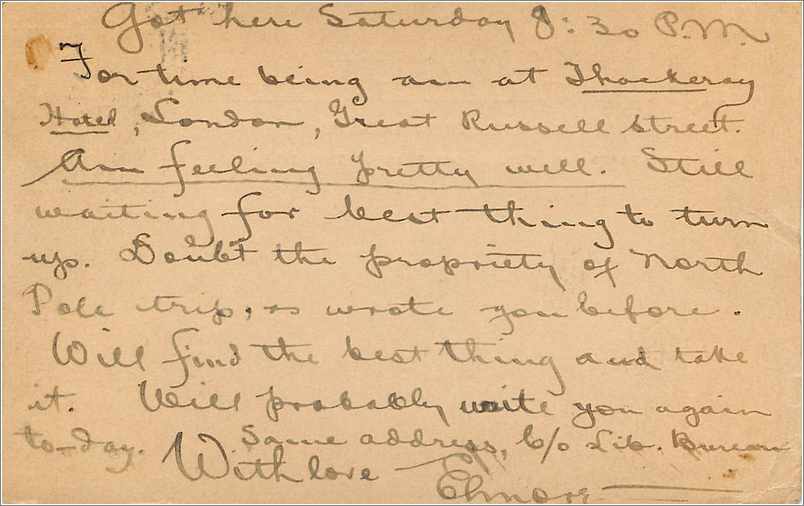 Got here Saturday 8:30 P.M.
For time being am at Thackeray
Hotel, London, Great Russell Street.
Am feeling pretty well. Still
waiting for best thing to turn
up. Doubt the propriety of North
Pole trip, as wrote you before.
Will find the best thing and take
it. Will probably write you again
to-day. Same address, c/o Lib. Bureau
With love — Elmore